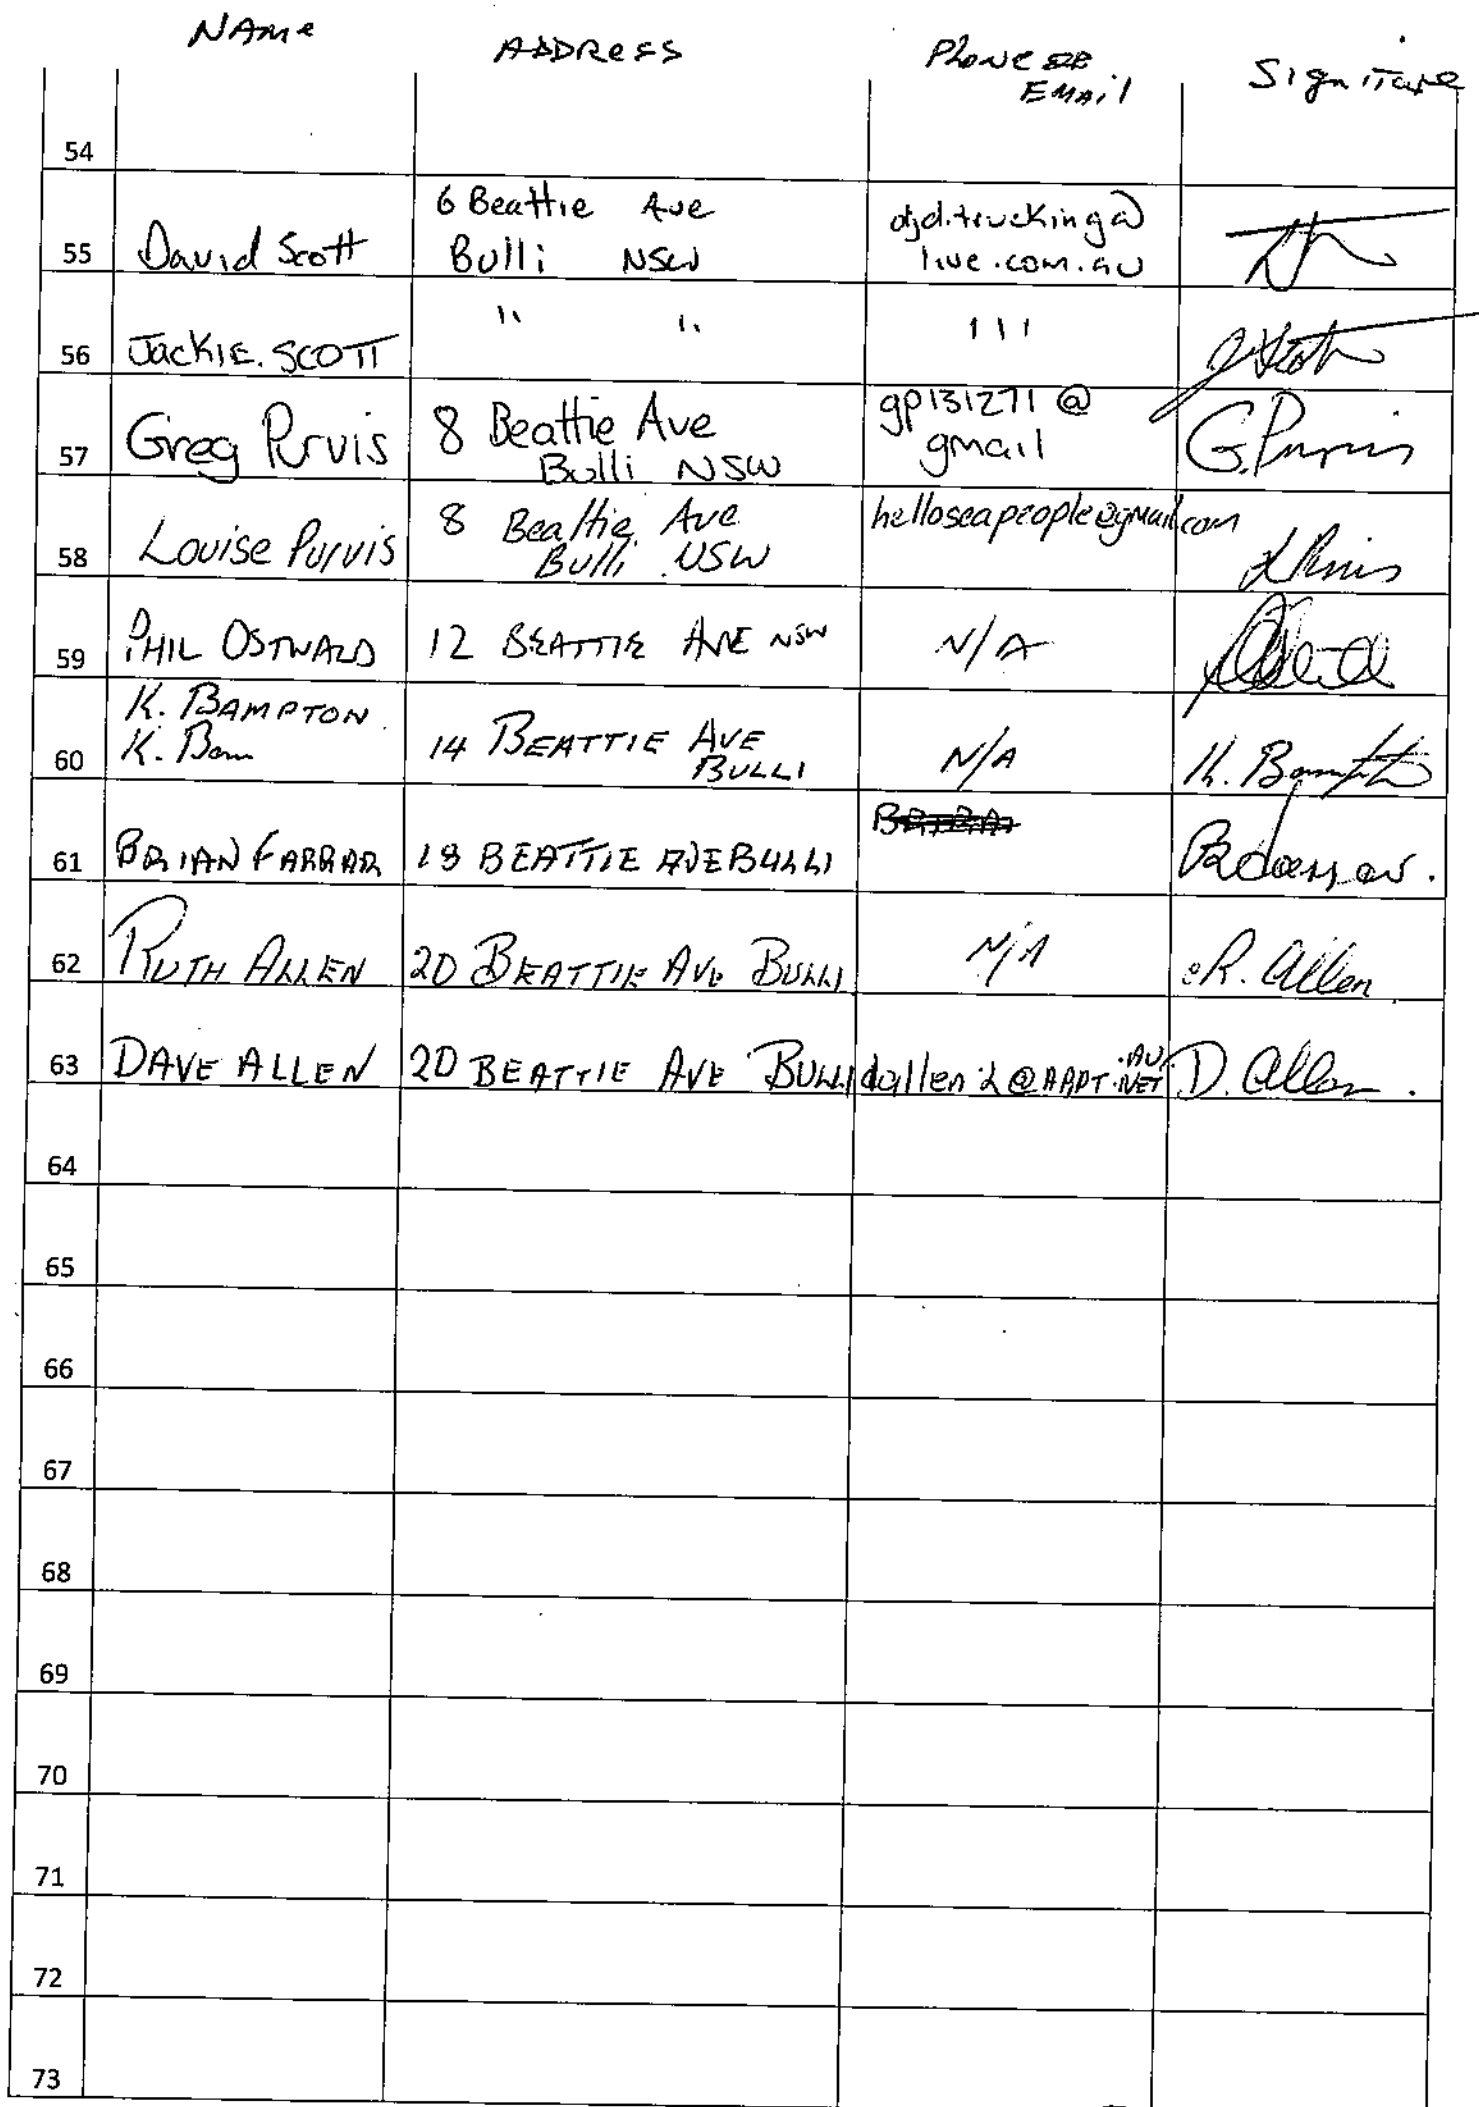 NAME ADDRESS Phone OR EMAil SignITure
54
55 David Scott 6 Beattie Ave Bulli NSW djd.trucking@live.com.au
56 Jackie. SCOTT " " " J Scott
57 Greg Purvis 8 Beattie Ave Bulli NSW gp131271@gmail G. Purvis
58 Louise Purvis 8 Beattie Ave Bulli NSW helloseapeople@gmail.com L Purvis
59 PHIL OSTWALD 12 BEATTIE AVE NSW N/A
60 K. BAMPTON K. Bam 14 BEATTIE AVE BULLI N/A K. Bampton
61 BRIAN FARRAR 18 BEATTIE AVE BULLI
62 RUTH ALLEN 20 BEATTIE AVE BULLI N/A R. Allen
63 DAVE ALLEN 20 BEATTIE AVE BULLI dallen2@AAPT.NET.AU D. Allen.
64
65
66
67
68
69
70
71
72
73